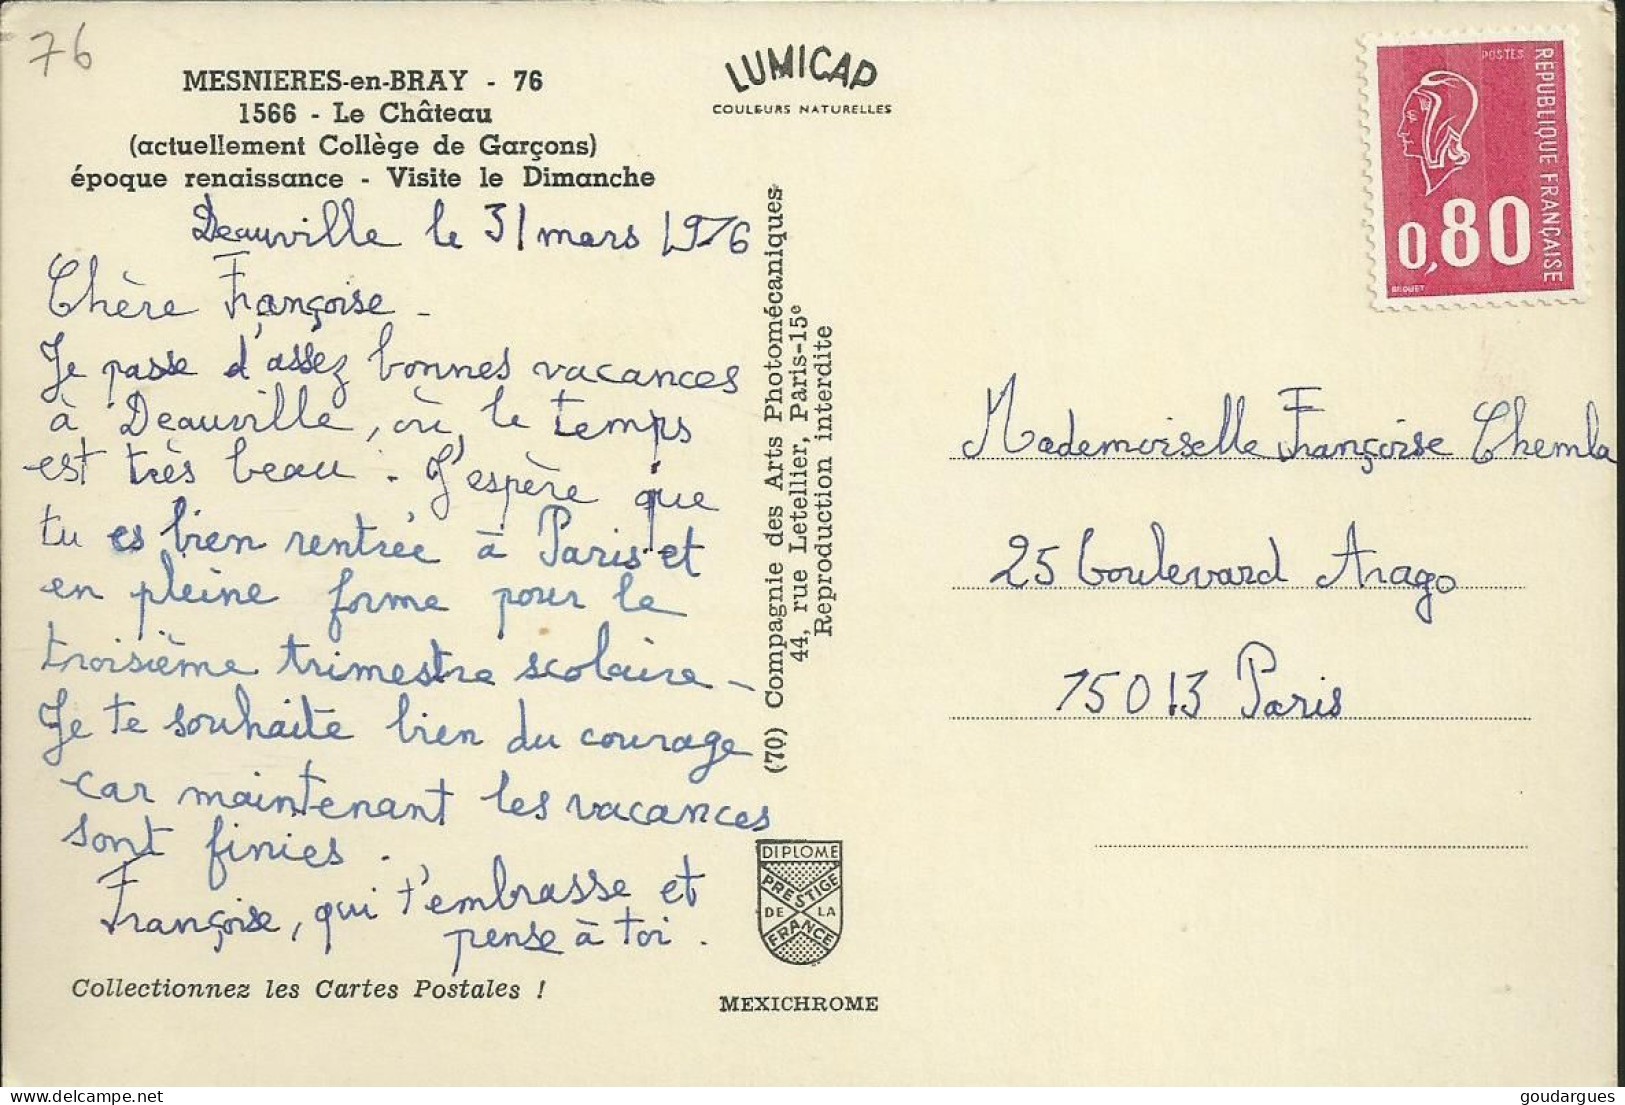 76
MESNIERES-en-BRAY - 76
1566 - Le Château
(actuellement Collège de Garçons)
époque renaissance - Visite le Dimanche
Deauville le 31 mars 1976
Chère Françoise -
Je passe d'assez bonnes vacances
à Deauville, où, le temps
est très beau. J'espère que
tu es bien rentrée à Paris et
en pleine forme pour le
troisième trimestre scolaire -
Je te souhaite bien du courage
car maintenant les vacances
sont finies.
Françoise, qui t'embrasse et
pense à toi.
Collectionnez les Cartes Postales !
LUMICAP
COULEURS NATURELLES
(70) Compagnie des Arts Photomécaniques
44, rue Letellier, Paris-15e
Reproduction interdite
DIPLOME
PRESTIGE
DE LA
FRANCE
MEXICHROME
POSTES
REPUBLIQUE FRANÇAISE
0,80
BEQUET
Mademoiselle Françoise Chemla
25 boulevard Arago
75013 Paris
delcampe.net
goudargues